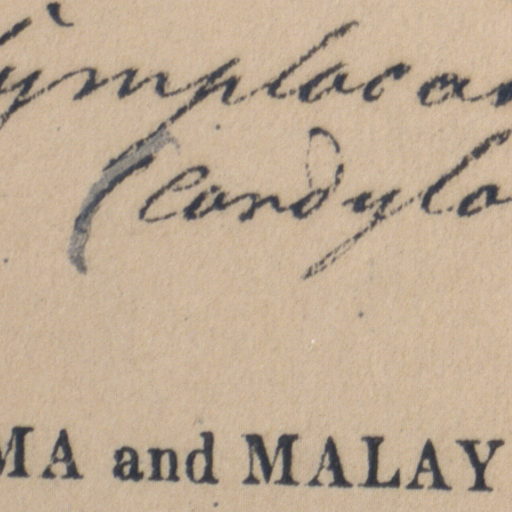 ymplocar
(condylo
MA and MALAY